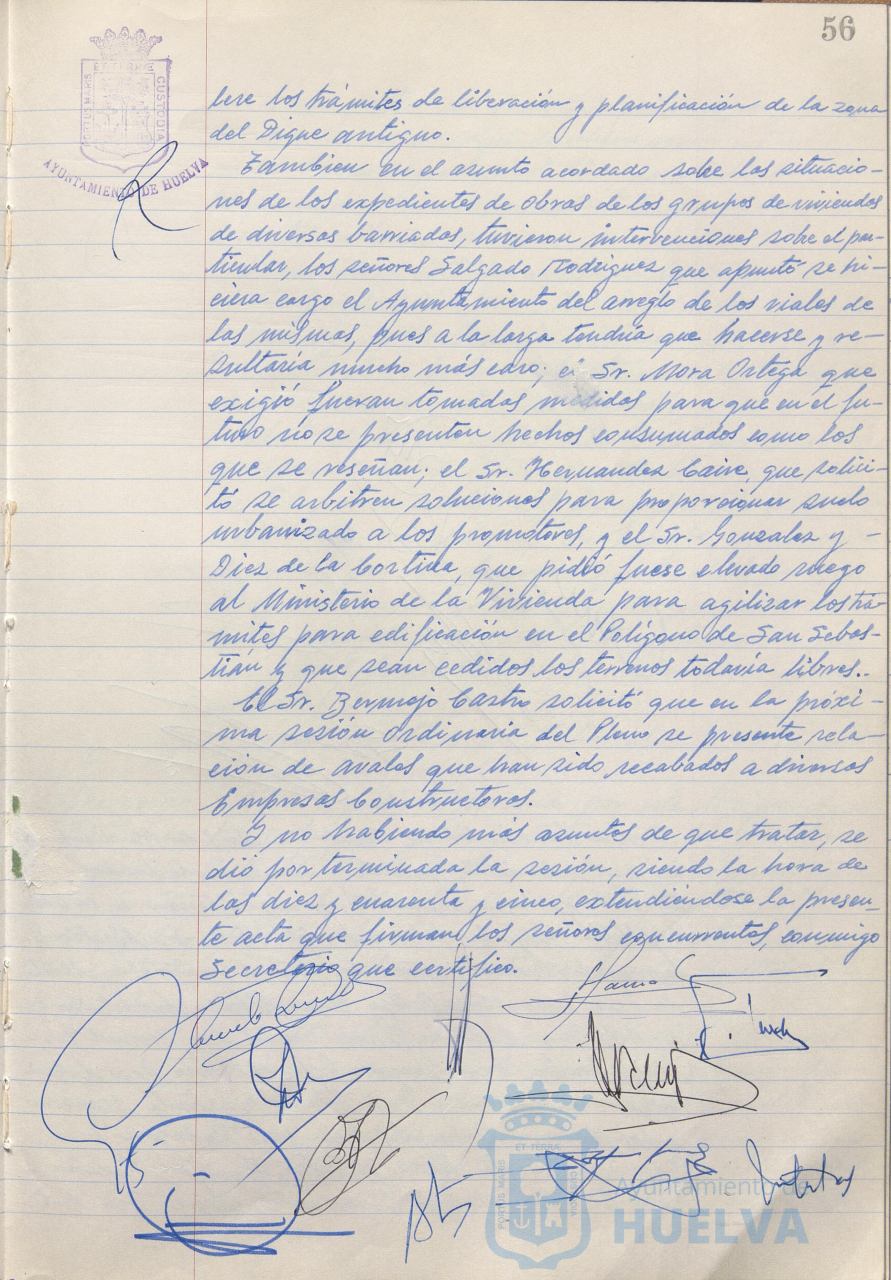 56
PORTUS MARIS
ET TERRAE
CUSTODIA
AYUNTAMIENTO DE HUELVA
lere los trámites de liberación y planificación de la zona
del Dique antiguo.
Tambien en el asunto acordado sobre las situacio-
nes de los expedientes de obras de los grupos de viviendas
de diversas barriadas, tuvieron intervenciones sobre el par-
ticular, los señores Salgado Rodriguez que apuntó se hi-
ciera cargo el Ayuntamiento del arreglo de los viales de
las mismas, pues a la larga tendría que hacerse y re-
sultaría mucho más caro; el Sr. Mora Ortega que
exigió fueran tomadas medidas para que en el fu-
turo no se presenten hechos consumados como los
que se reseñan; el Sr. Hernandez Caire, que solici-
tó se arbitren soluciones para proporcionar suelo
urbanizado a los promotores, y el Sr. Gonzalez y -
Diez de la Cortina, que pidió fuese elevado ruego
al Ministerio de la Vivienda para agilizar los trá-
mites para edificación en el Polígono de San Sebas-
tián y que sean cedidos los terrenos todavía libres.-
El Sr. Bermejo Castro solicitó que en la próxi-
ma sesión ordinaria del Pleno se presente rela-
ción de avales que han sido recabados a diversas
Empresas Constructoras.
Y no habiendo más asuntos de que tratar, se
dió por terminada la sesión, siendo la hora de
las diez y cuarenta y cinco, extendiéndose la presen-
te acta que firman los señores concurrentes, conmigo
Secretario que certifico.
PORTUS MARIS
ET TERRAE
Ayuntamiento de
HUELVA